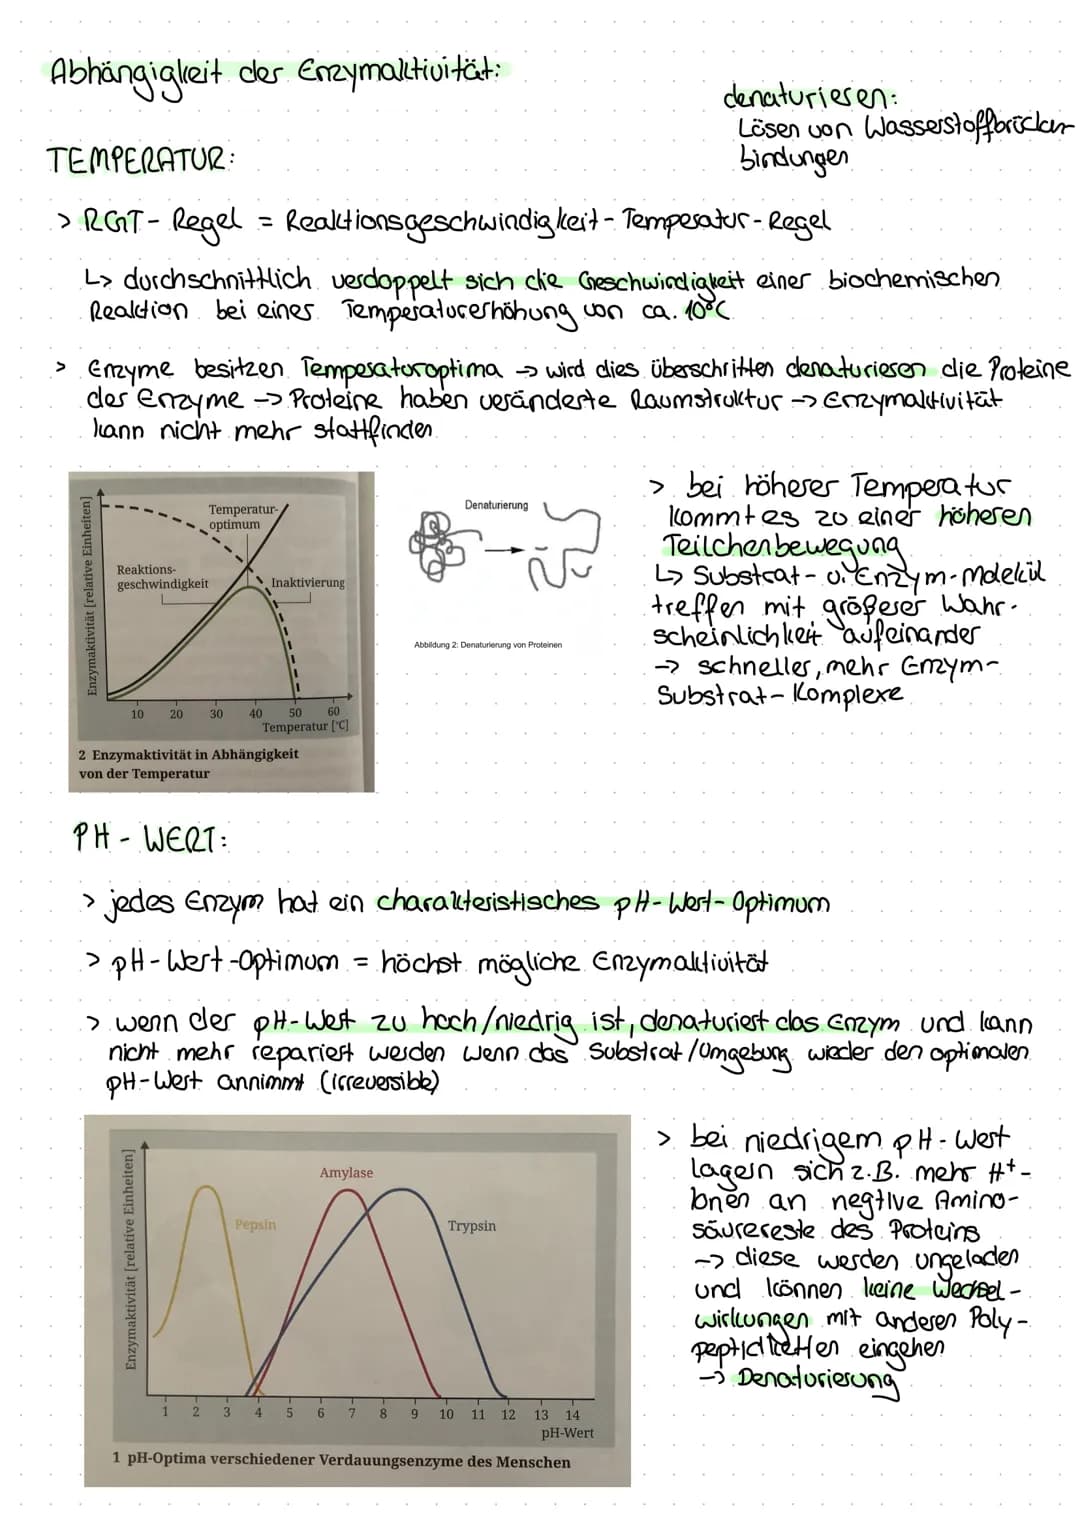 Abhängigkeit der Enzymaktivität:
denaturieren:
Lösen von Wasserstoffbrücken
bindungen
TEMPERATUR:
> RGT - Regel = Reaktionsgeschwindigkeit - Temperatur - Regel
↳ durchschnittlich verdoppelt sich die Geschwindigkeit einer biochemischen
Reaktion bei einer Temperaturerhöhung von ca. 10°C
> Enzyme besitzen Temperaturoptima → wird dies überschritten denaturieren die Proteine
der Enzyme → Proteine haben veränderte Raumstruktur → Enzymaktivität
kann nicht mehr stattfinden
Enzymaktivität [relative Einheiten]
Temperatur-
optimum
Reaktions-
geschwindigkeit
Inaktivierung
10 20 30 40 50 60
Temperatur [°C]
2 Enzymaktivität in Abhängigkeit
von der Temperatur
Denaturierung
Abbildung 2: Denaturierung von Proteinen
> bei höherer Temperatur
kommt es zu einer höheren
Teilchenbewegung
↳ Substrat- u. Enzym-Molekül
treffen mit größerer Wahr-
scheinlichkeit aufeinander
→ schneller, mehr Enzym-
Substrat-Komplexe
PH - WERT:
> jedes Enzym hat ein charakteristisches pH-Wert-Optimum
> pH-Wert-Optimum = höchst mögliche Enzymaktivität
> wenn der pH-Wert zu hoch/niedrig ist, denaturiert das Enzym und kann
nicht mehr repariert werden wenn das Substrat/Umgebung wieder den optimalen
pH-Wert annimmt (irreversible)
Enzymaktivität [relative Einheiten]
Amylase
Pepsin
Trypsin
1 2 3 4 5 6 7 8 9 10 11 12 13 14
pH-Wert
1 pH-Optima verschiedener Verdauungsenzyme des Menschen
> bei niedrigem pH-Wert
lagern sich z.B. mehr H⁺-
Ionen an negtive Amino-
säurereste des Proteins
→ diese werden ungeladen
und können keine Wechsel-
wirkungen mit anderen Poly-
peptidketten eingehen
→ Denaturierung